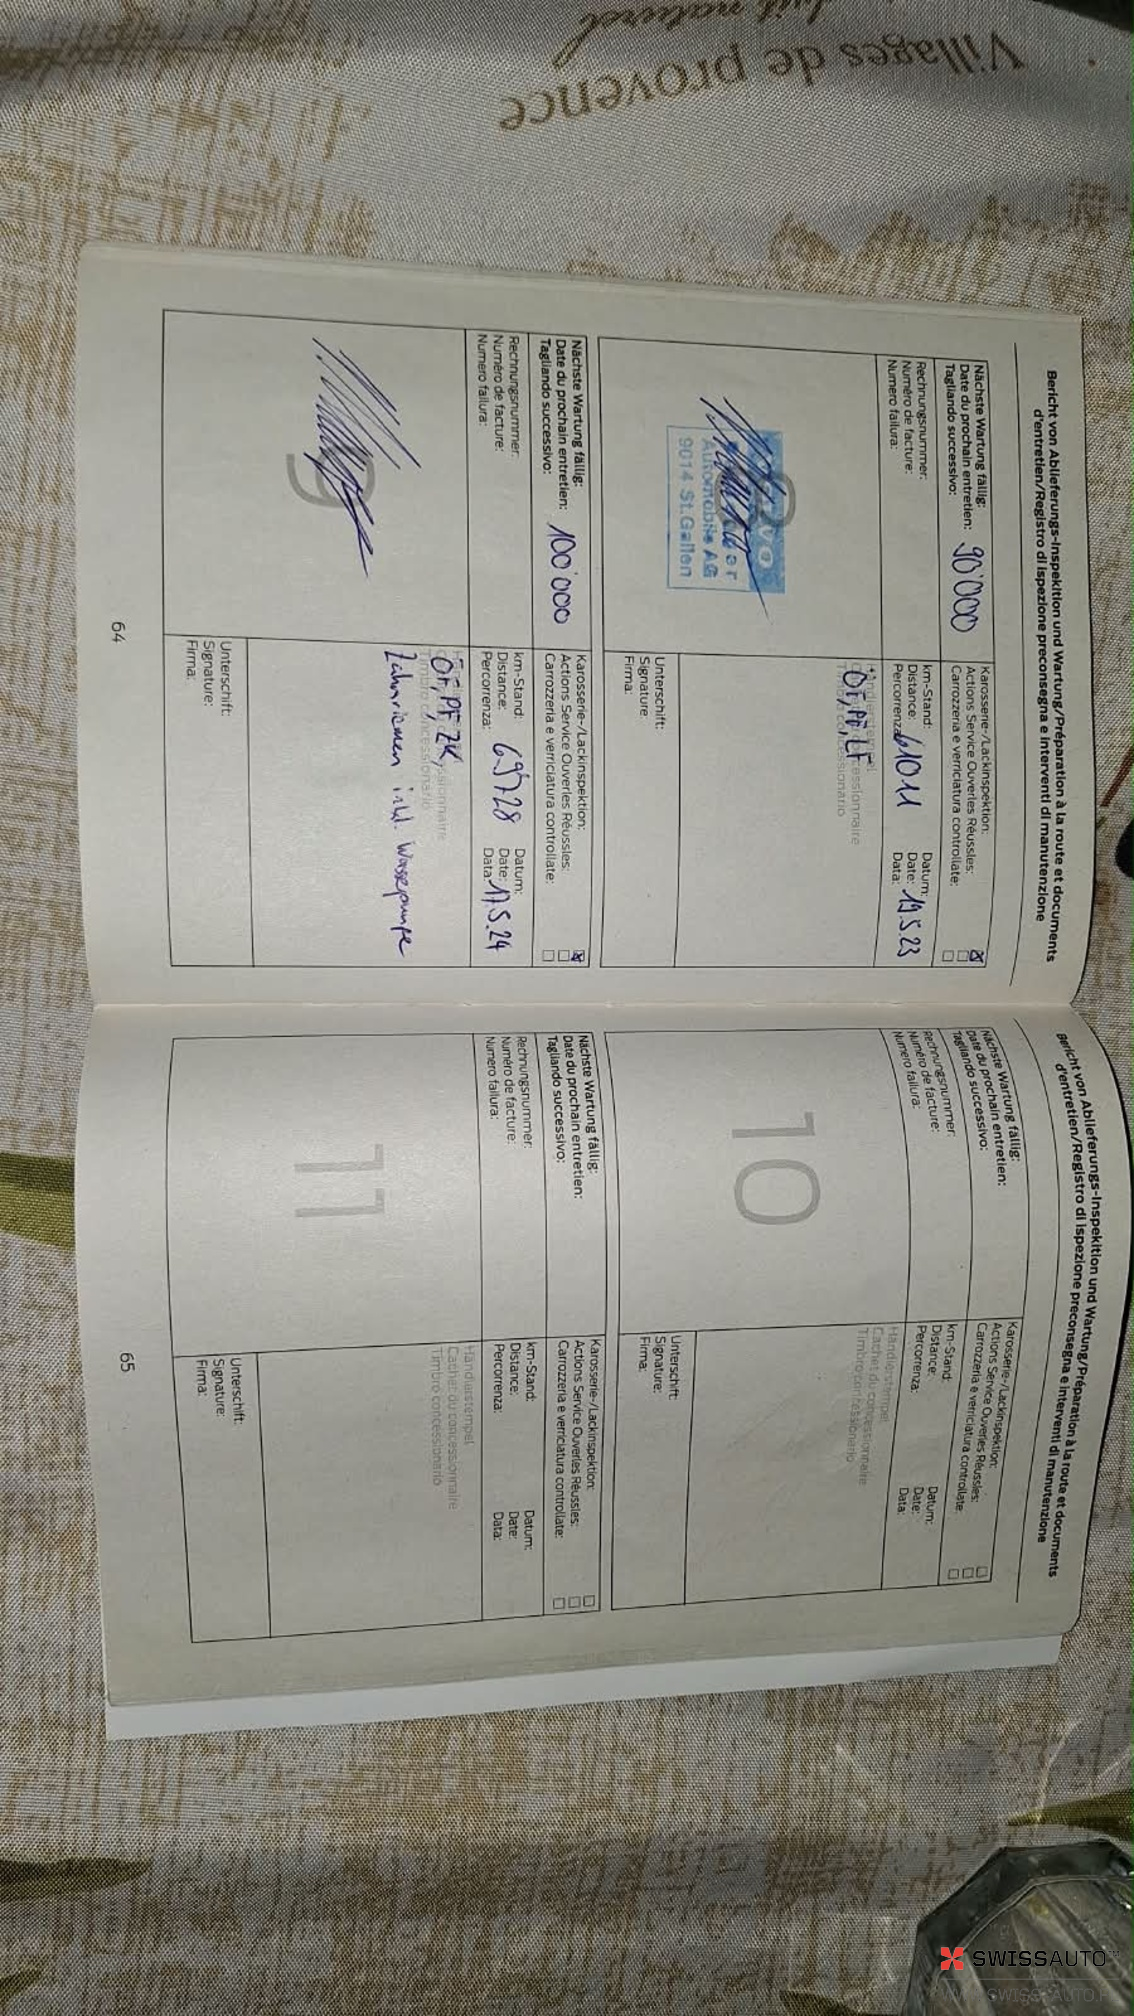 Villages de provence
Bericht von Ablieferungs-Inspekition und Wartung/Préparation à la route et documents
d'entretien/Registro di ispezione preconsegna e interventi di manutenzione
Nächste Wartung fällig:
Date du prochain entretien: 90'000
Tagliando successivo:
Karosserie-/Lackinspektion:
Actions Service Ouverles Réussles:
Carrozzeria e verriciatura controllate:
Rechnungsnummer:
Numéro de facture:
Numero failura:
km-Stand:
Distance: 61011
Percorrenza:
Datum:
Date: 19.5.23
Data:
8
Automobile AG
9014 St.Gallen
ÖF, PF, LF
Unterschrift:
Signature:
Firma:
Nächste Wartung fällig:
Date du prochain entretien: 100'000
Tagliando successivo:
Karosserie-/Lackinspektion:
Actions Service Ouverles Réussles:
Carrozzeria e verriciatura controllate:
Rechnungsnummer:
Numéro de facture:
Numero failura:
km-Stand:
Distance: 69728
Percorrenza:
Datum:
Date: 17.5.24
Data:
9
ÖF, PF, ZK,
Zahnriemen inkl. Wasserpumpe
Unterschrift:
Signature:
Firma:
64
Bericht von Ablieferungs-Inspekition und Wartung/Préparation à la route et documents
d'entretien/Registro di ispezione preconsegna e interventi di manutenzione
Nächste Wartung fällig:
Date du prochain entretien:
Tagliando successivo:
Karosserie-/Lackinspektion:
Actions Service Ouverles Réussles:
Carrozzeria e verriciatura controllate:
Rechnungsnummer:
Numéro de facture:
Numero failura:
km-Stand:
Distance:
Percorrenza:
Datum:
Date:
Data:
10
Händlerstempel
Cachet du concessionnaire
Timbro concessionario
Unterschrift:
Signature:
Firma:
Nächste Wartung fällig:
Date du prochain entretien:
Tagliando successivo:
Karosserie-/Lackinspektion:
Actions Service Ouverles Réussles:
Carrozzeria e verriciatura controllate:
Rechnungsnummer:
Numéro de facture:
Numero failura:
km-Stand:
Distance:
Percorrenza:
Datum:
Date:
Data:
11
Händlerstempel
Cachet du concessionnaire
Timbro concessionario
Unterschrift:
Signature:
Firma:
65
SWISSAUTO